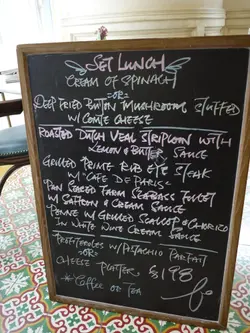 SET LUNCH
CREAM OF SPINACH
-OR-
DEEP FRIED BUTTON MUSHROOMS STUFFED
W/ COMTE CHEESE
ROASTED DUTCH VEAL STRIPLOIN WITH
LEMON & BUTTER SAUCE
GRILLED PRIME RIB EYE STEAK
W/ "CAFE DE PARIS"
PAN SEARED FARM SEABASS FILLET
W/ SAFFRON & CREAM SAUCE
PENNE W/ GRILLED SCALLOP & CHORIZO
IN WHITE WINE CREAM SAUCE
PROFITEROLES W/ PISTACHIO PARFAIT
-OR-
CHEESE PLATTER $198
*COFFEE OR TEA